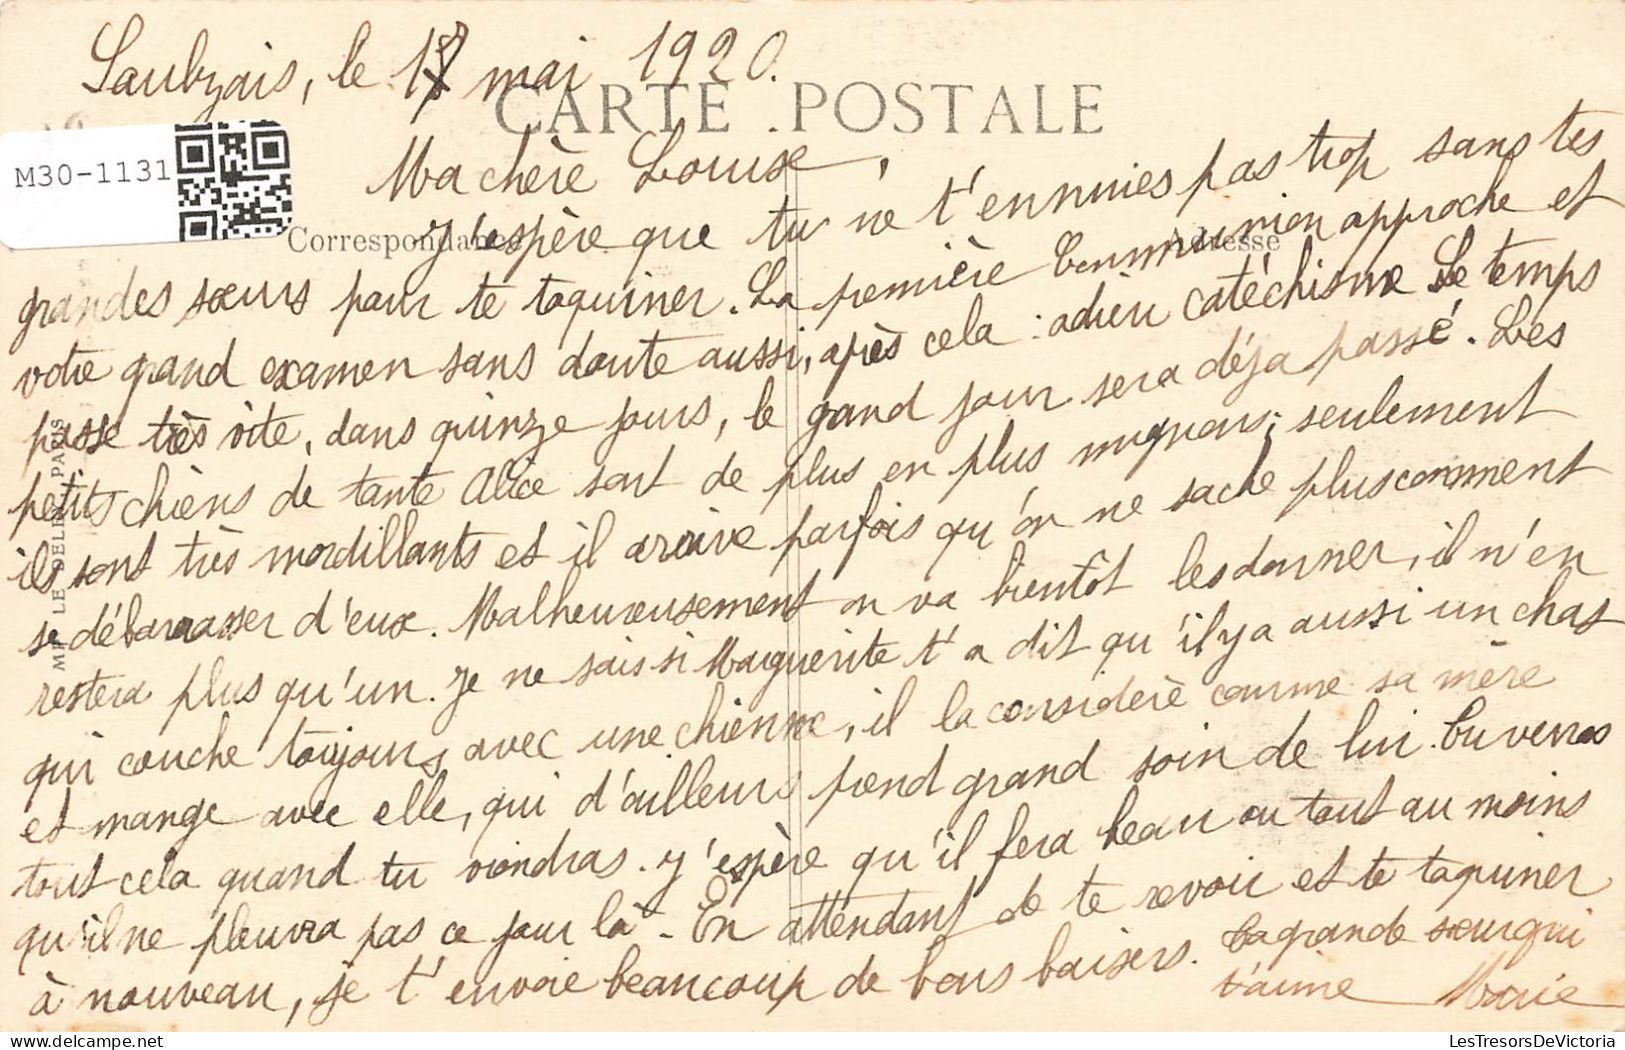 Saulzais, le 18 mai 1920.
CARTE POSTALE
M30-1131
Ma chère Louise,
Correspondance
Adresse
J'espère que tu ne t'ennuies pas trop sans tes
grandes sœurs pour te taquiner. La première Communion approche et
votre grand examen sans doute aussi, après cela : adieu catéchisme Le temps
passe très vite, dans quinze jours, le grand jour sera déja passé. Les
petits chiens de tante Alice sont de plus en plus mignons; seulement
ils sont très mordillants et il arrive parfois qu'on ne sache plus comment
se débarrasser d'eux. Malheureusement on va bientôt les donner, il n'en
restera plus qu'un. Je ne sais si Marguerite t'a dit qu'il y a aussi un chat
qui couche toujours avec une chienne, il la considère comme sa mère
et mange avec elle, qui d'ailleurs prend grand soin de lui. Tu verras
tout cela quand tu viendras. J'espère qu'il fera beau ou tout au moins
qu'il ne pleuvra pas ce jour là. En attendant de te revoir et te taquiner
à nouveau, je t'envoie beaucoup de bons baisers. Ta grande sœur qui
t'aime Marie
LE DELEY, PARIS
LesTresorsDeVictoria.com